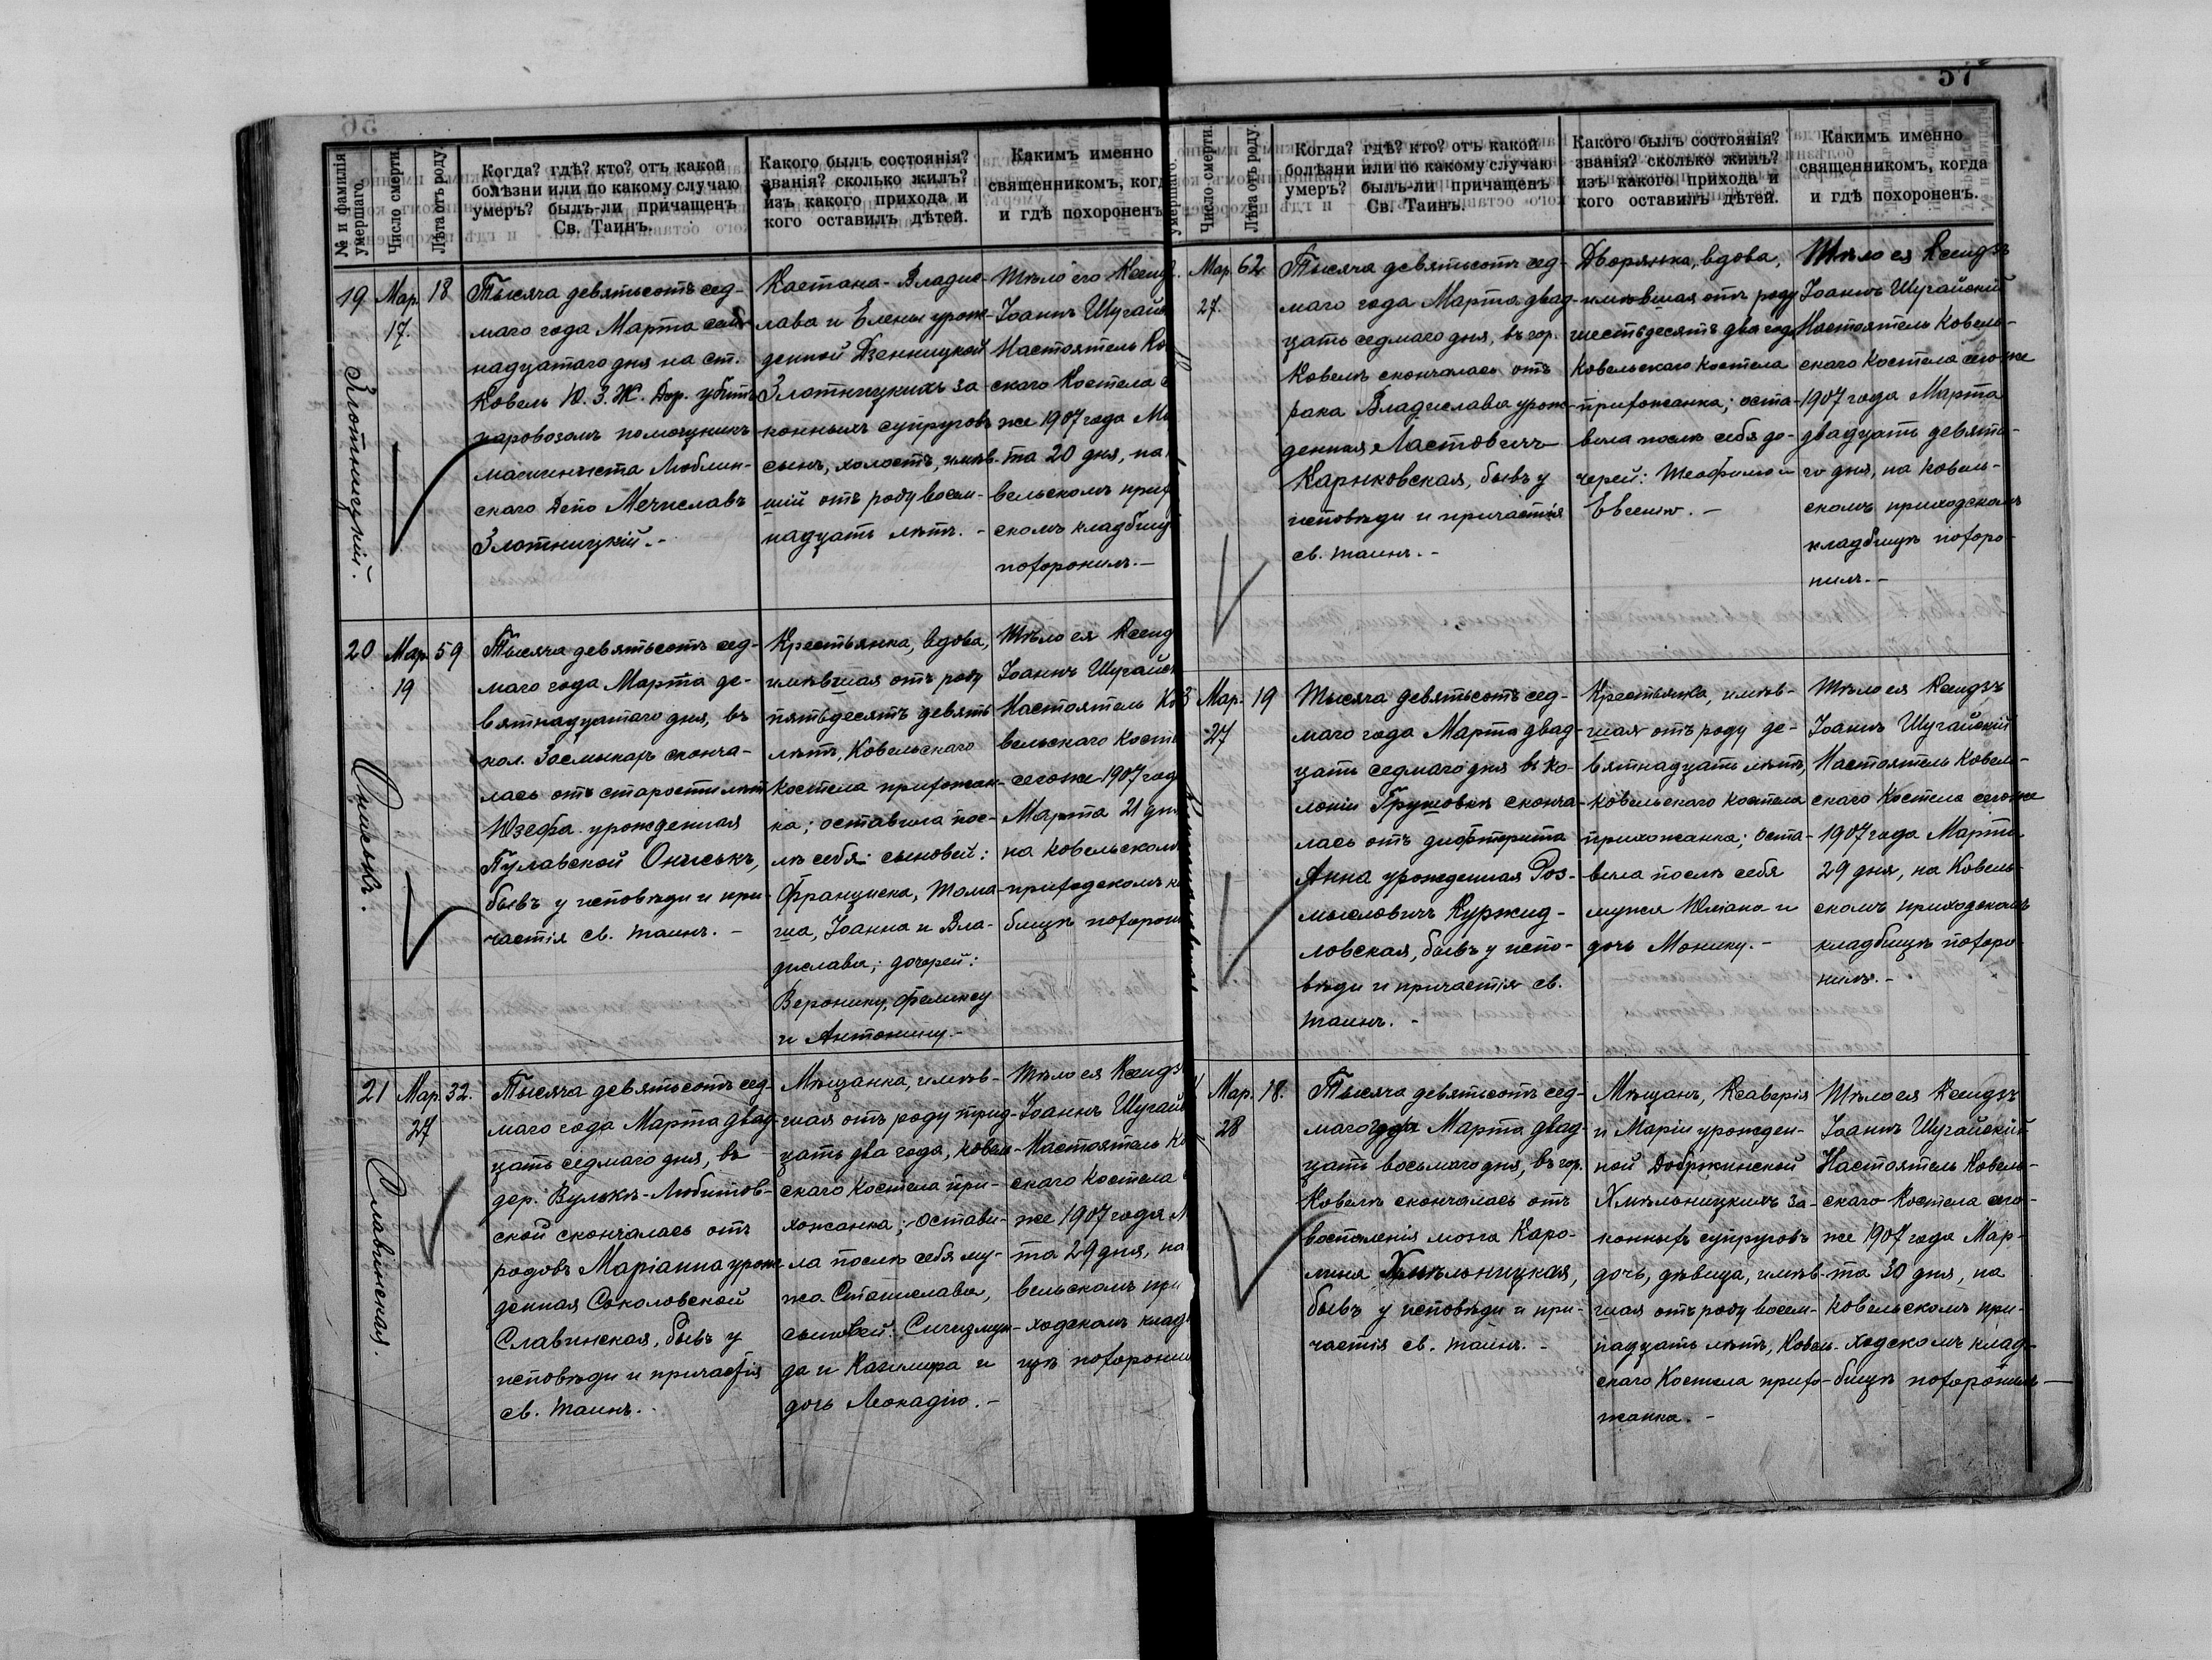 № и фамилія умершаго.
Число смерти.
Лѣта отъ роду.
Когда? гдѣ? кто? отъ какой
болѣзни или по какому случаю
умеръ? былъ-ли причащенъ
Св. Таинъ.
Какого былъ состоянія?
званія? сколько жилъ?
изъ какого прихода и
кого оставилъ дѣтей.
Какимъ именно
священникомъ, когд
и гдѣ похороненъ
19
Злотницкій.
Мар.
17.
18
Тысяча девятьсотъ сед-
маго года Марта сем-
надцатаго дня на ст.
Ковель Ю. З. Ж. Дор. убитъ
паровозомъ помощникъ
машиниста Люблин-
скаго Депо Мечиславъ
Злотницкій. -
Каетана-Владис-
лава и Елены урож-
денной Дзенницкой
Злотницкихъ за-
конныхъ супруговъ
сынъ, холостъ, имѣв-
шій отъ роду восем-
надцать лѣтъ. -
Тѣло его Ксенд
Іоаннъ Шугайс
Настоятель Ко
скаго Костела с
же 1907 года Ма
та 20 дня, на
вельскомъ прих
скомъ кладбищ
похоронилъ. -
20
Ониськъ.
Мар.
19
59
Тысяча девятьсотъ сед-
маго года Марта де-
вятнадцатаго дня, въ
кол. Засмыкахъ сконча-
лась отъ старости лѣтъ
Юзефа урожденная
ПулавскойОниськъ,
бывъ у исповѣди и при-
частія св. таинъ. -
Крестьянка, вдова,
имѣвшая отъ роду
пятьдесятъ девять
лѣтъ, Ковельскаго
костела прихожан-
ка; оставила пос-
лѣ себя: сыновей:
Франциска, Тома-
ша, Іоанна и Вла-
дислава; дочерей:
Веронику, Феликсу
и Антонину. -
Тѣло ея Ксенд
Іоаннъ Шугайск
Настоятель Ко
вельскаго Косте
сегоже 1907 год
Марта 21 дня
на Ковельском
приходскомъ к
бищѣ похорони
21
Славинская.
Мар.
27
32.
Тысяча девятьсотъ сед-
маго года Марта двад-
цать седмаго дня, въ
дер. Вулькѣ-Любитов-
ской скончалась отъ
родовъ Маріанна урож-
денная Соколовской
Славинская, бывъ у
исповѣди и причастія
св. таинъ. -
Мѣщанка, имѣв-
шая отъ роду трид-
цать два года, Ковель-
скаго Костела при-
хожанка; остави-
ла послѣ себя му-
жа Станислава,
сыновей: Сигизмун-
да и Казимира и
дочь Леокадію. -
Тѣло ея Ксендз
Іоаннъ Шугайс
Настоятель Ко
скаго Костела
же 1907 года М
та 29 дня, на
вельскомъ при
ходскомъ кладб
щѣ похоронил
57
умершаго.
Число смерти.
Лѣта отъ роду.
Когда? гдѣ? кто? отъ какой
болѣзни или по какому случаю
умеръ? былъ-ли причащенъ
Св. Таинъ.
Какого былъ состоянія?
званія? сколько жилъ?
изъ какого прихода и
кого оставилъ дѣтей.
Какимъ именно
священникомъ, когда
и гдѣ похороненъ.
Мар.
27.
62
Тысяча девятьсотъ сед-
маго года Марта двад-
цать седмаго дня, въ гор.
Ковелѣ скончалась отъ
рака Владислава урож-
денная Ластовичъ
Карнковская, бывъ у
исповѣди и причастія
св. таинъ. -
Дворянка, вдова,
имѣвшая отъ роду
шестьдесятъ два года
Ковельскаго Костела
прихожанка; оста-
вила послѣ себя до-
черей: Теофилію и
Евгенію. -
Тѣло ея Ксендзъ
Іоаннъ Шугайскій
Настоятель Ковель-
скаго Костела сегоже
1907 года Марта
двадцать девята-
го дня, на Ковель-
скомъ приходскомъ
кладбищѣ похоро-
нилъ. -
3
Мар.
27
19
Тысяча девятьсотъ сед-
маго года Марта двад-
цать седмаго дня въ ко-
лоніи Грушовкѣ сконча-
лась отъ дифтерита
Анна урожденная Роз-
мысловичъ Куржид-
ловская, бывъ у испо-
вѣди и причастія св.
таинъ. -
Крестьянка, имѣв-
шая отъ роду де-
вятнадцать лѣтъ,
Ковельскаго Костела
прихожанка; оста-
вила послѣ себя
мужа Юліана и
дочь Монику. -
Тѣло ея Ксендзъ
Іоаннъ Шугайскій
Настоятель Ковель-
скаго Костела сегоже
1907 года Марта
29 дня, на Ковель-
скомъ приходскомъ
кладбищѣ похоро-
нилъ. -
Мар.
28
18.
Тысяча девятьсотъ сед-
маго года Марта двад-
цать восьмаго дня, въ гор.
Ковелѣ скончалась отъ
воспаленія мозга Каро-
лина Хмѣльницкая,
бывъ у исповѣди и при-
частія св. таинъ. -
Мѣщанъ, Ксаверія
и Маріи урожден-
ной Добржинской
Хмѣльницкихъ за-
конныхъ супруговъ
дочь, дѣвица, имѣв-
шая отъ роду восем-
надцать лѣтъ, Ковель-
скаго Костела прихо-
жанка. -
Тѣло ея Ксендзъ
Іоаннъ Шугайскій
Настоятель Ковель-
скаго Костела сего-
же 1907 года Мар-
та 30 дня, на
Ковельскомъ при-
ходскомъ клад-
бищѣ похоронилъ -